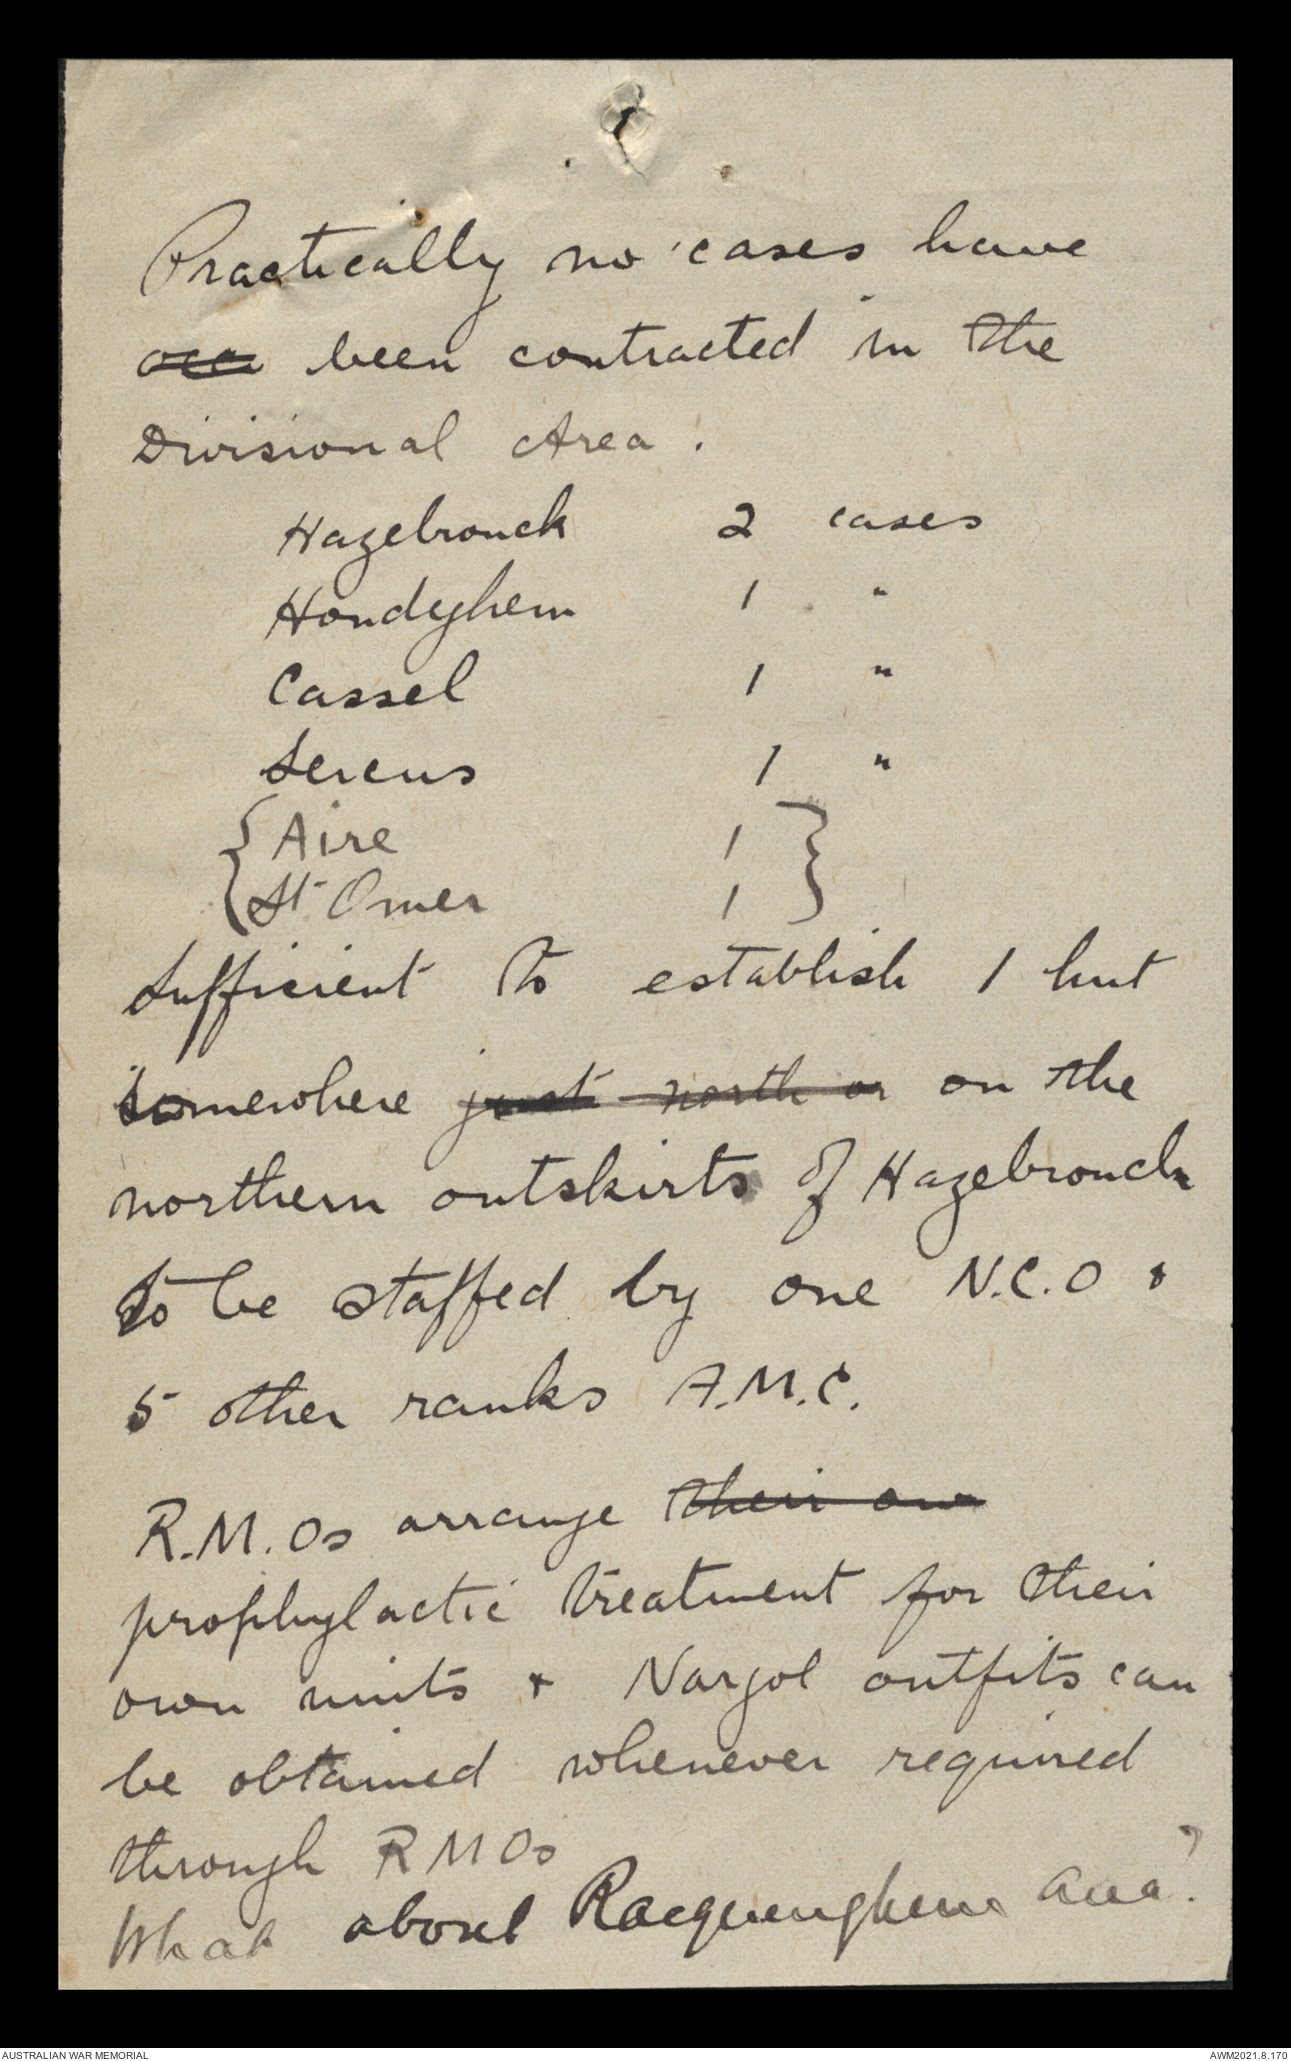 Practically no cases have
occ been contracted in the
Divisional Area.
Hazebrouck 2 cases
Hondeghem 1 "
Cassel 1 "
Sercus 1 "
{Aire 1}
{St Omer 1}
Sufficient to establish 1 hut
somewhere just north or on the
northern outskirts of Hazebrouck
to be staffed by one N.C.O &
5 other ranks A.M.C.
R.M.Os arrange their own
prophylactic treatment for their
own units & Nargol outfits can
be obtained whenever required
through RMOs
What about Racquinghem area?
AUSTRALIAN WAR MEMORIAL AWM2021.8.170